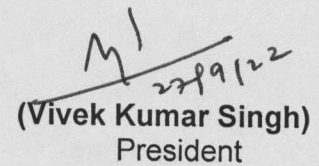 27/9/22
(Vivek Kumar Singh)
President